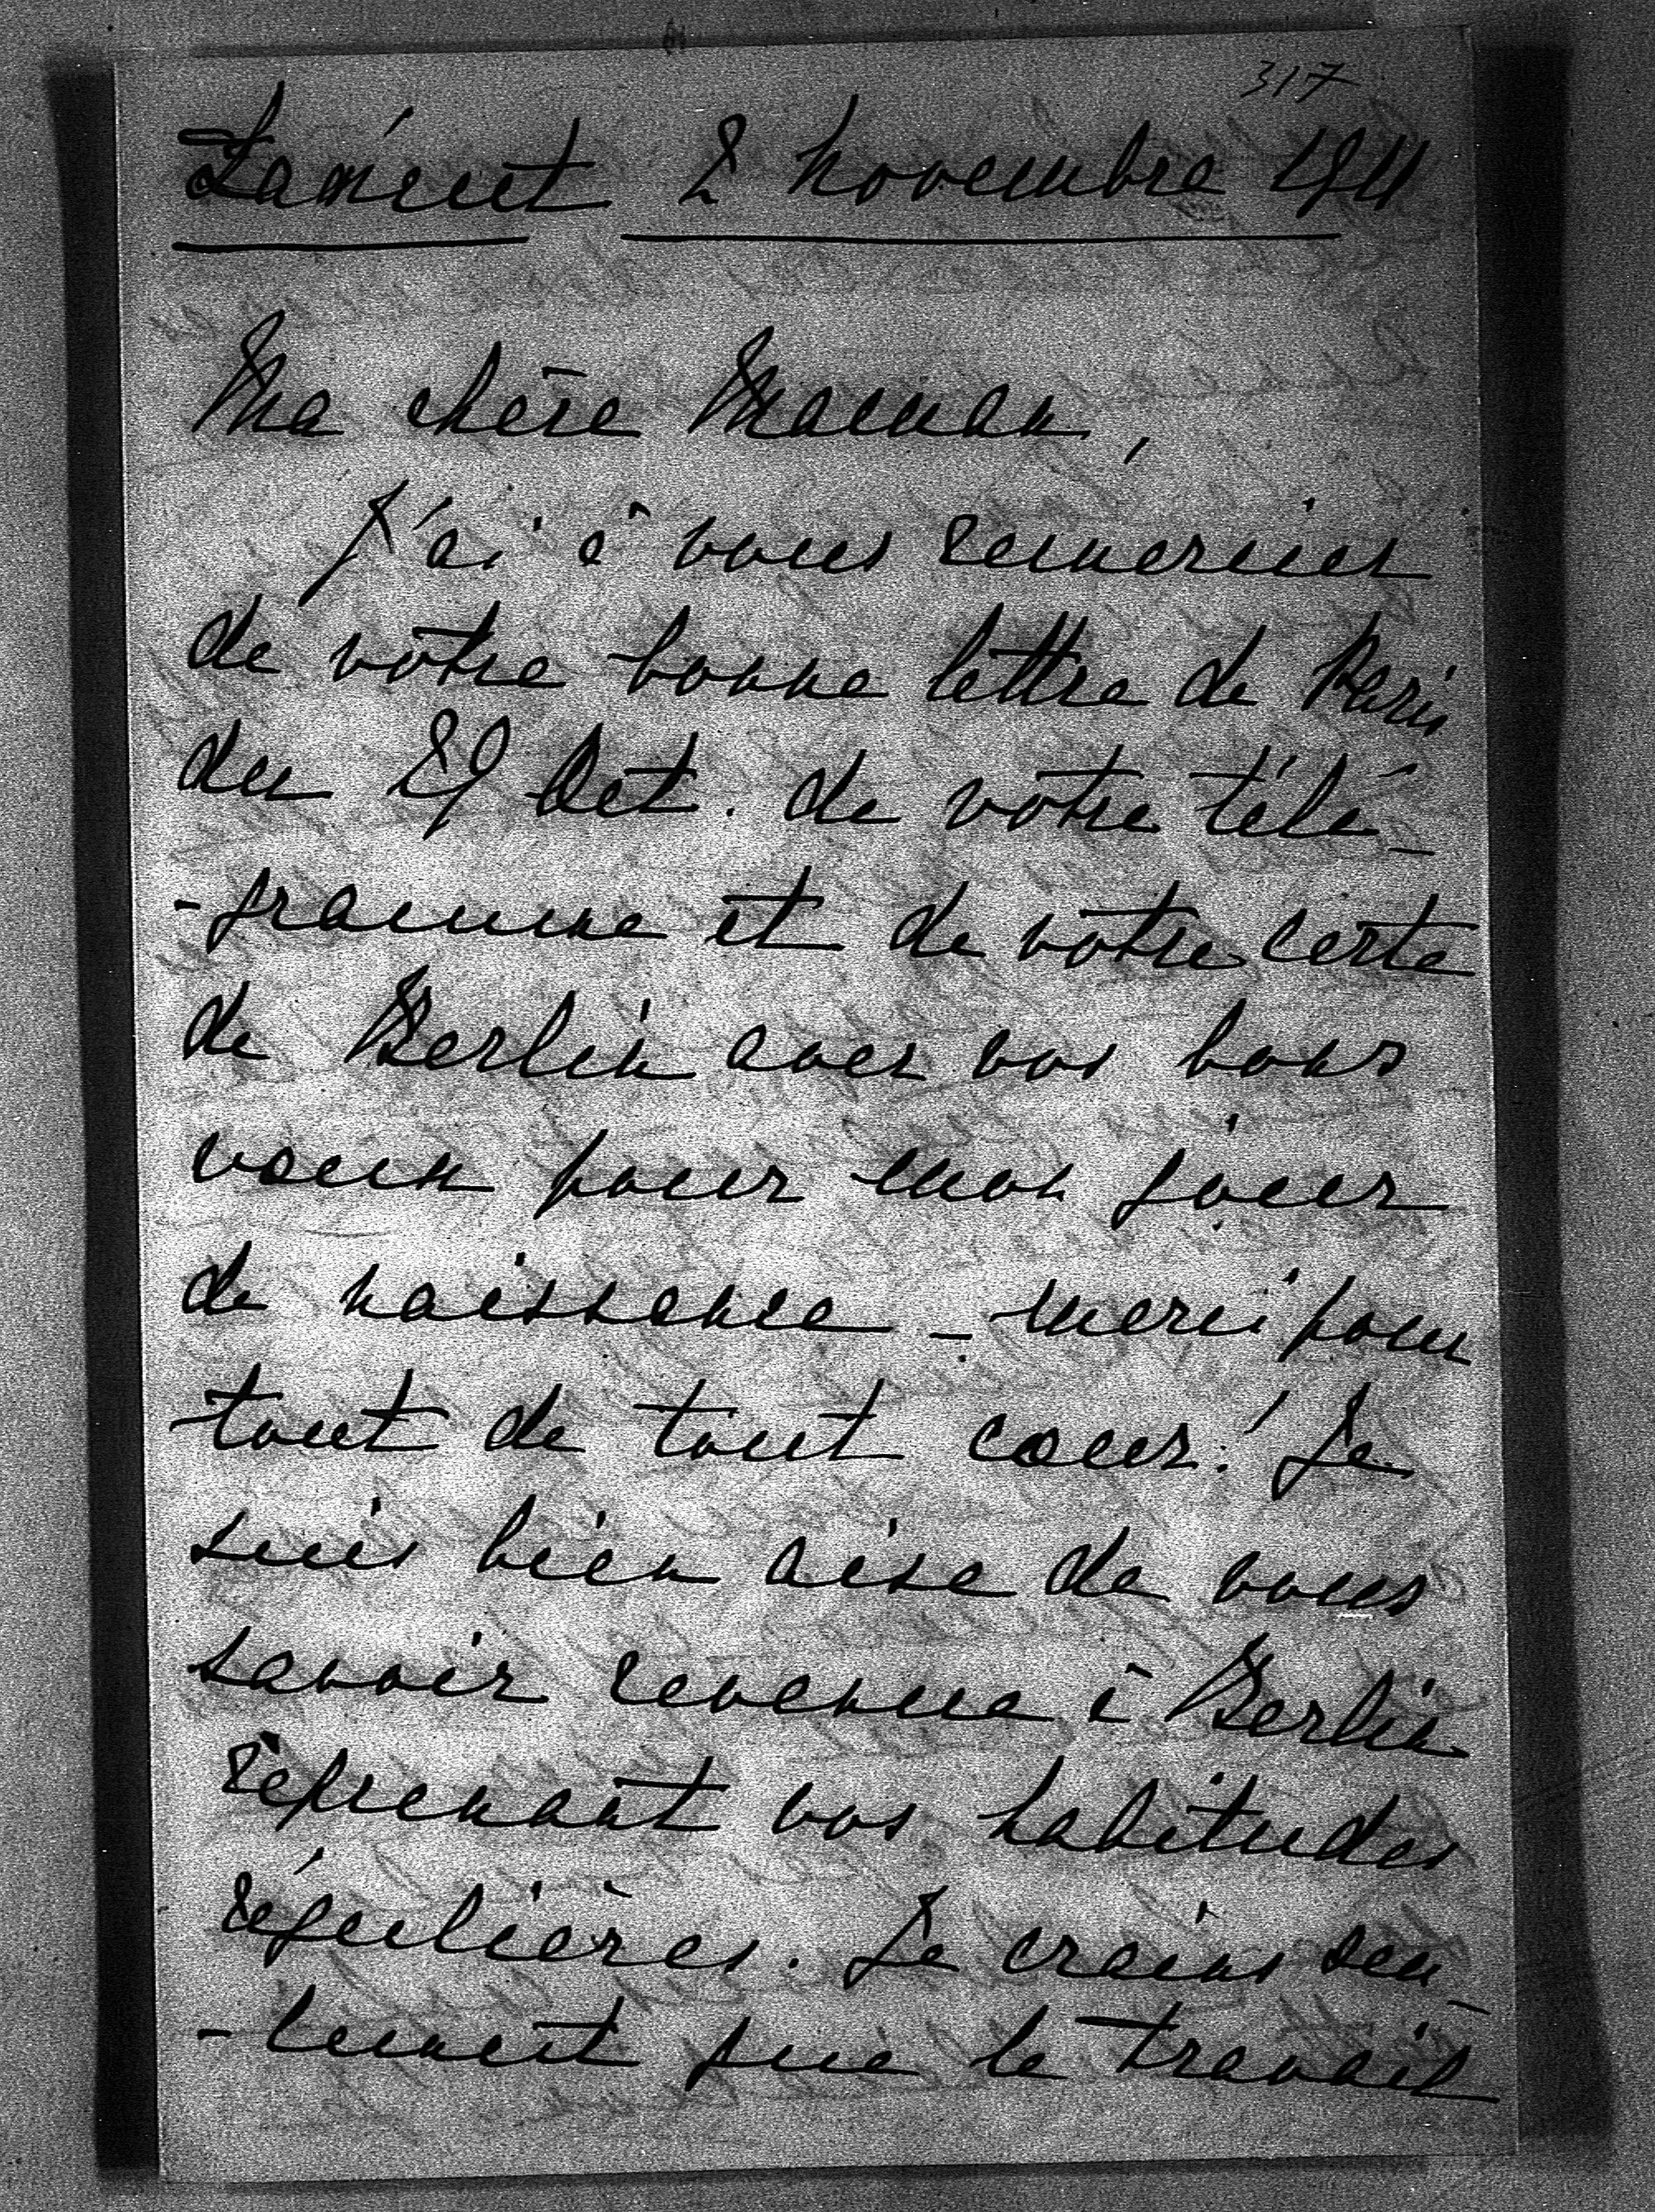 317
Łańcut 2 novembre 1911
Ma chère Maman,
J'ai à vous remercier
de votre bonne lettre de Paris
du 29 Oct. de votre télé-
-gramme et de votre carte
de Berlin avec vos bons
voeux pour mon jour
de naissance - merci pour
tout de tout coeur! Je
suis bien aise de vous
savoir revenue à Berlin
reprenant vos habitudes
régulières. Je crains seu-
-lement que le travail